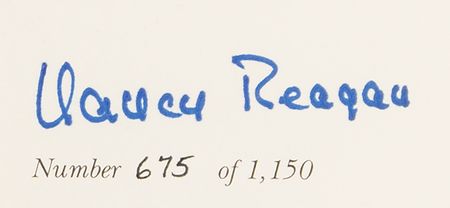 Nancy Reagan
Number 675 of 1,150